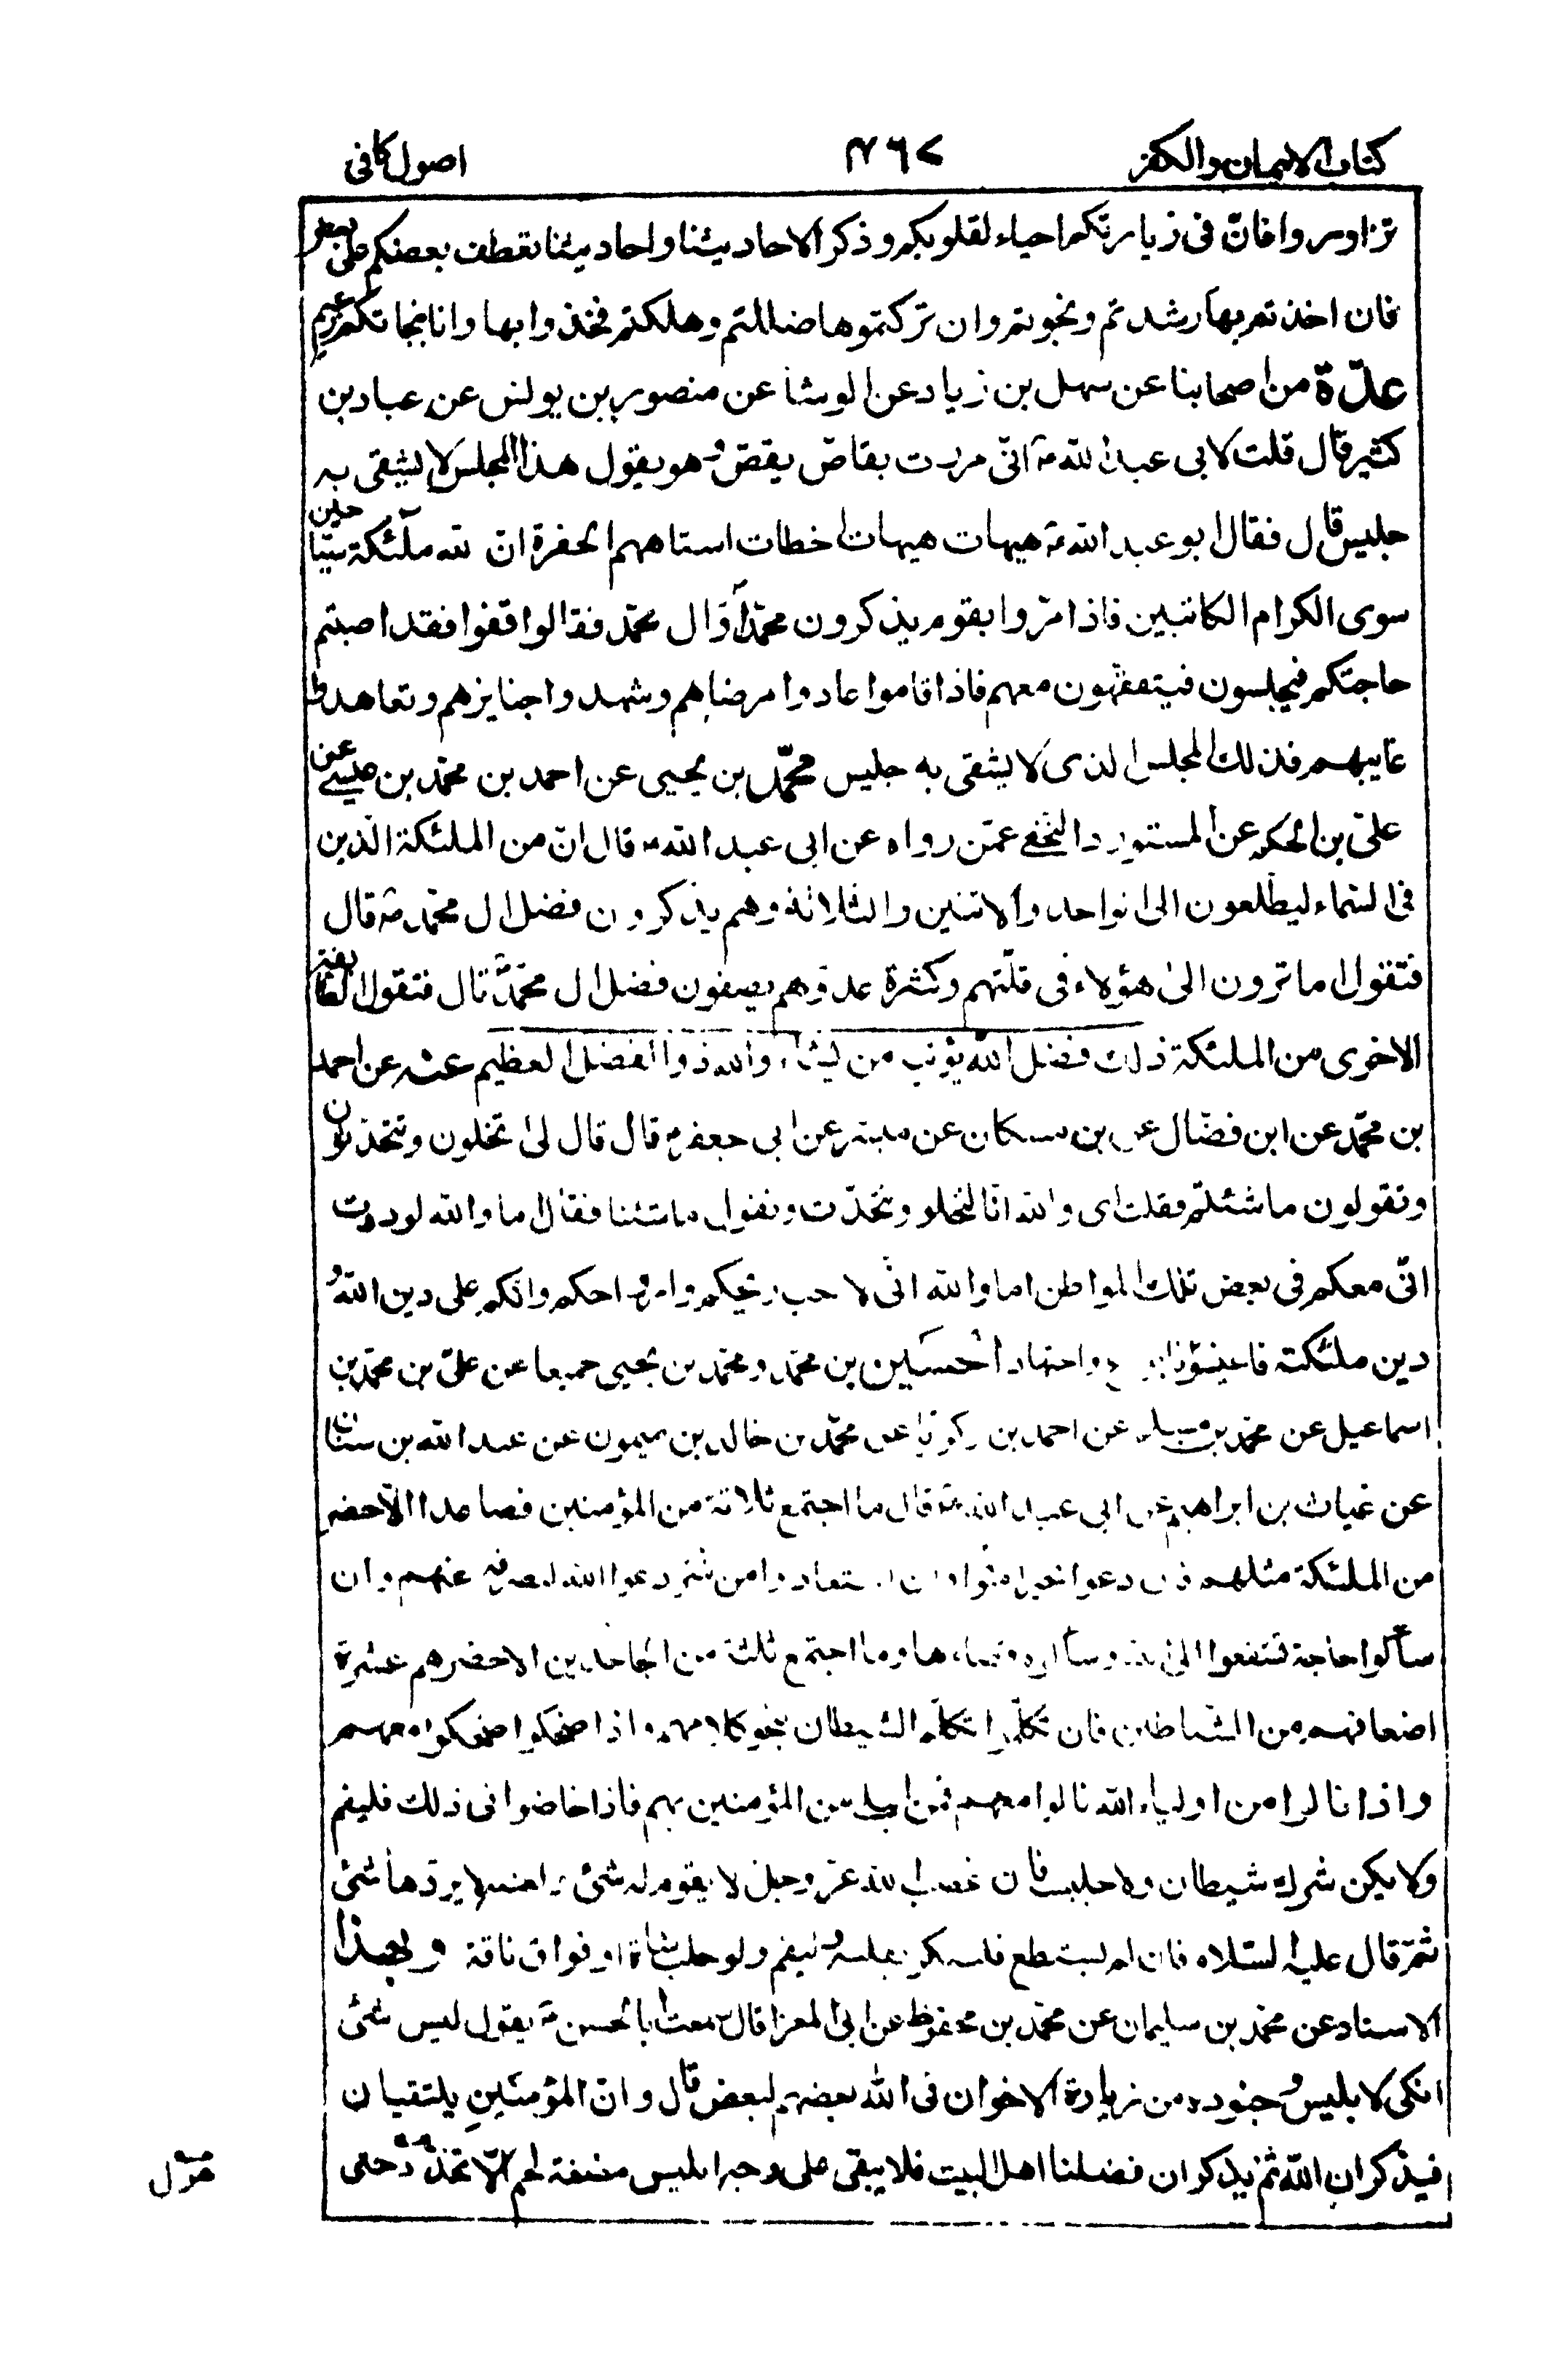 كتاب الايمان والكفر ٤٦٧ اصول كافى
تزاوروا فانّ فى زيارتكم احياء لقلوبكم وذكرا لاحاديثنا واحاديثنا تعطف بعضكم على بعض
فان اخذتم بها رشدتم ونجوتم وان تركتموها ضللتم وهلكتم فخذوا بها وانا بنجاتكم زعيم
عدّة من اصحابنا عن سهل بن زياد عن الوشا عن منصور بن يونس عن عباد بن
كثير قال قلت لابى عبد الله ع انّى مررت بقاصّ يقصّ وهو يقول هذا المجلس لا يشقى به
جليس قال فقال ابو عبد الله ع هيهات هيهات اخطات استاههم الحفرة انّ لله ملٓئكة سيّاحين
سوى الكرام الكاتبين فاذا مرّوا بقوم يذكرون محمّداً وال محمّد فقالوا قفوا فقد اصبتم
حاجتكم فيجلسون فيتفقّهون معهم فاذا قاموا عادوا مرضاهم وشهدوا جنايزهم وتعاهدوا
غايبهم فذلك المجلس الذى لا يشقى به جليس محمّد بن يحيى عن احمد بن محمّد بن عيسى عن
علىّ بن الحكم عن المستورد النخعى عمّن رواه عن ابى عبد الله ع قال انّ من الملئكة الّذين
فى السّماء ليطّلعون الى الواحد والاثنين والثلاثة وهم يذكرون فضل ال محمّد ع قال
فتقول اما ترون الى هؤلاء فى قلّتهم وكثرة عدوّهم يصفون فضل ال محمّد قال فتقول الطايفة
الاخرى من الملئكة ذلك فضل الله يؤتيه من يشاء والله ذوا الفضل العظيم عنه عن احمد
بن محمّد عن ابن فضّال عن بن مسكان عن ميسر عن ابى جعفر ع قال قال لى تخلون وتتحدّثون
وتقولون ما شئتم فقلت اى والله انّا لنخلو ونتحدّث ونقول ما شئنا فقال اما والله لوددت
انّى معكم فى بعض تلك المواطن اما والله انّى لاحب ريحكم وارواحكم وانّكم على دين الله و
دين ملئكته فاعينونا بورع واجتهاد الحسين بن محمّد ومحمّد بن يحيى جميعا عن علىّ بن محمّد بن
اسماعيل عن محمّد بن مسلم عن احمد بن زكريا عن محمّد بن خالد بن ميمون عن عبد الله بن سنان
عن غياث بن ابراهيم عن ابى عبد الله ع قال ما اجتمع ثلاثة من المؤمنين فصاعدا الّا حضر
من الملئكة مثلهم فان دعوا بخير امّنوا وان استعاذوا من شر دعوا الله ليصرفه عنهم وان
سألوا حاجة تشفعوا الى الله وسألوه قضاءها وما اجتمع ثلثة من الجاحدين الا حضرهم عشرة
اضعافهم من الشّياطين فان تكلّموا تكلّم الشيطان بنحو كلامهم واذا ضحكوا ضحكوا معهم
واذا نالوا من اولياء الله نالوا معهم فمن ابتلى من المؤمنين بهم فاذا خاضوا فى ذلك فليقم
ولا يكن شرك شيطان ولا جليسه فان غضب الله عزّ وجلّ لا يقوم له شئ ولعنته لا يردّها شئ
ثمّ قال عليه السّلام فان لم يستطع فلينكر بقلبه وليقم ولو حلب شاة او فواق ناقة وبهذا
الاسناد عن محمّد بن سليمان عن محمّد بن محفوظ عن ابى المعزا قال سمعت ابا الحسن ع يقول ليس شئ
انكى لابليس وجنوده من زيارة الاخوان فى الله بعضهم لبعض قال وانّ المؤمنَين يلتقيان
فيذكران الله ثمّ يذكران فضلنا اهل البيت فلا يبقى على وجه ابليس مضغة لحم الّا تخدّد حتى